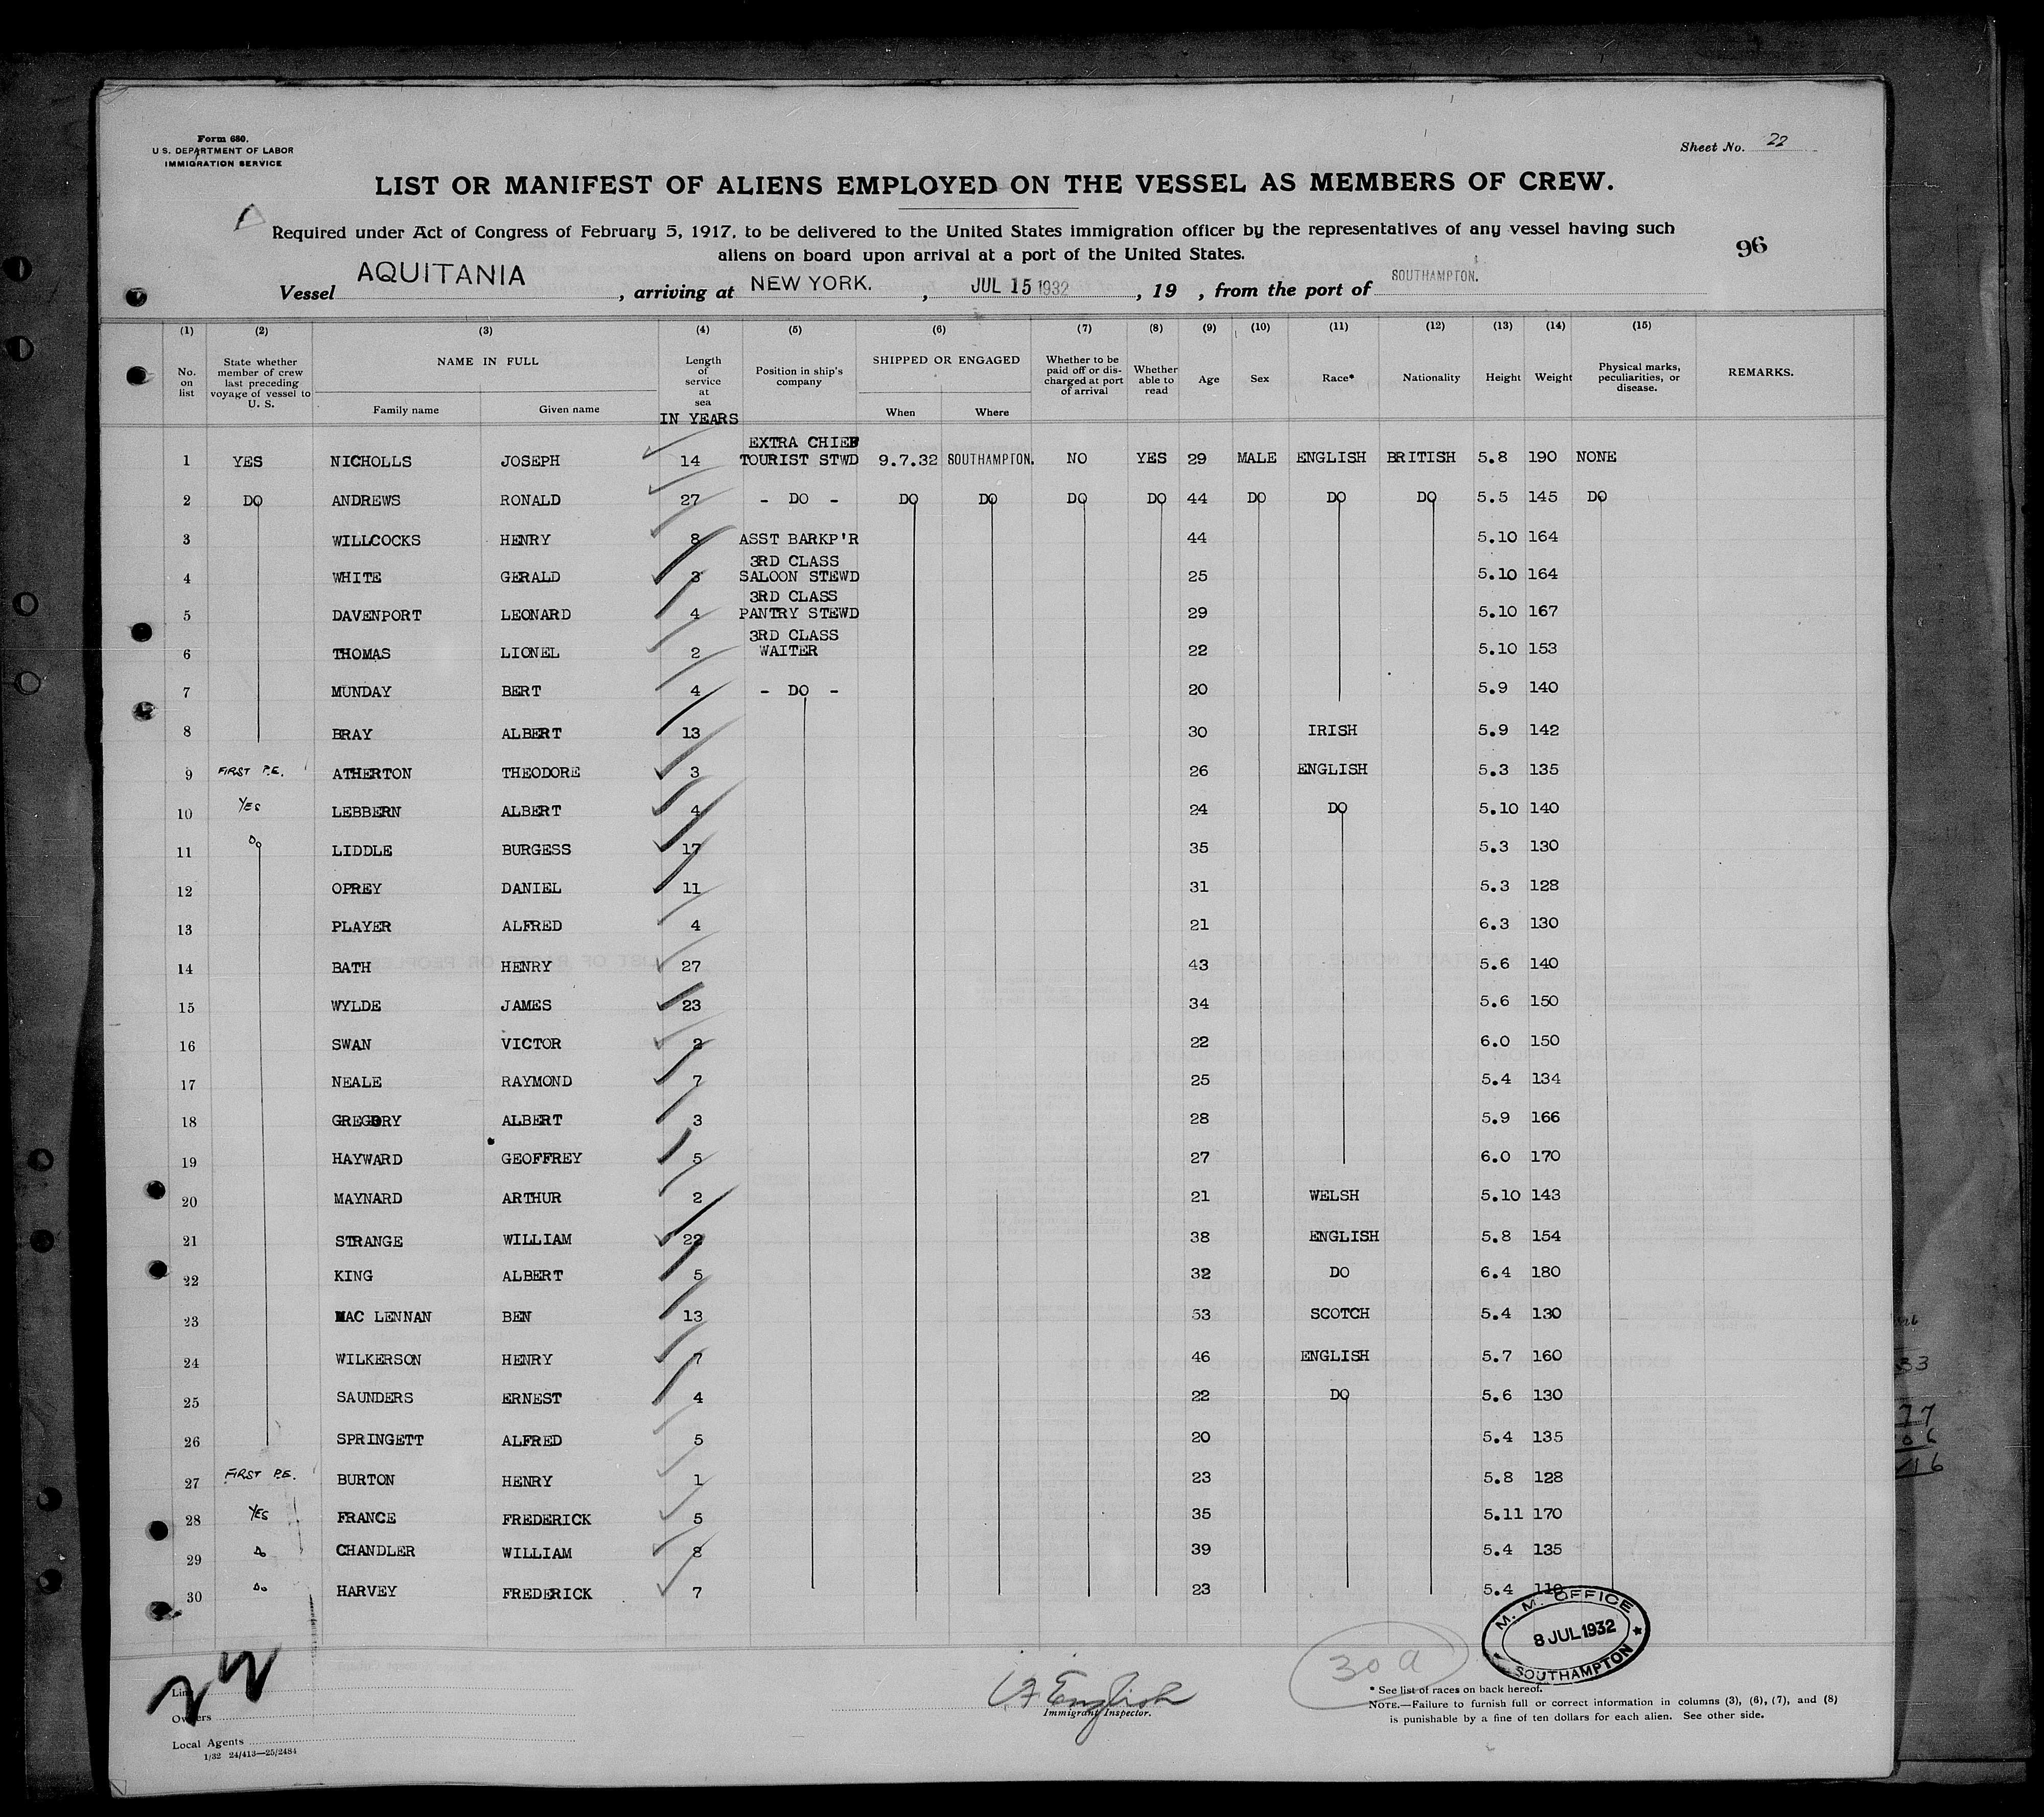 Form 680.
U. S. DEPARTMENT OF LABOR
IMMIGRATION SERVICE
Sheet No. 22
LIST OR MANIFEST OF ALIENS EMPLOYED ON THE VESSEL AS MEMBERS OF CREW.
Required under Act of Congress of February 5, 1917, to be delivered to the United States immigration officer by the representatives of any vessel having such
aliens on board upon arrival at a port of the United States.
96
Vessel AQUITANIA, arriving at NEW YORK., JUL 15 1932, 19 , from the port of SOUTHAMPTON.
(1) (2) (3) (4) (5) (6) (7) (8) (9) (10) (11) (12) (13) (14) (15)
No. on list State whether member of crew last preceding voyage of vessel to U. S. NAME IN FULL Family name Given name Length of service at sea IN YEARS Position in ship's company SHIPPED OR ENGAGED When Where Whether to be paid off or discharged at port of arrival Whether able to read Age Sex Race* Nationality Height Weight Physical marks, peculiarities, or disease. REMARKS.
1 YES NICHOLLS JOSEPH 14 EXTRA CHIEF TOURIST STWD 9.7.32 SOUTHAMPTON. NO YES 29 MALE ENGLISH BRITISH 5.8 190 NONE
2 DO ANDREWS RONALD 27 - DO - DO DO DO DO 44 DO DO DO 5.5 145 DO
3 WILLCOCKS HENRY 8 ASST BARKP'R 44 5.10 164
4 WHITE GERALD 3 3RD CLASS SALOON STEWD 25 5.10 164
5 DAVENPORT LEONARD 4 3RD CLASS PANTRY STEWD 29 5.10 167
6 THOMAS LIONEL 2 3RD CLASS WAITER 22 5.10 153
7 MUNDAY BERT 4 - DO - 20 5.9 140
8 BRAY ALBERT 13 30 IRISH 5.9 142
9 FIRST P.E. ATHERTON THEODORE 3 26 ENGLISH 5.3 135
10 YES LEBBERN ALBERT 4 24 DO 5.10 140
11 Do LIDDLE BURGESS 17 35 5.3 130
12 OPREY DANIEL 11 31 5.3 128
13 PLAYER ALFRED 4 21 6.3 130
14 BATH HENRY 27 43 5.6 140
15 WYLDE JAMES 23 34 5.6 150
16 SWAN VICTOR 2 22 6.0 150
17 NEALE RAYMOND 7 25 5.4 134
18 GREGORY ALBERT 3 28 5.9 166
19 HAYWARD GEOFFREY 5 27 6.0 170
20 MAYNARD ARTHUR 2 21 WELSH 5.10 143
21 STRANGE WILLIAM 22 38 ENGLISH 5.8 154
22 KING ALBERT 5 32 DO 6.4 180
23 MAC LENNAN BEN 13 53 SCOTCH 5.4 130
24 WILKERSON HENRY 7 46 ENGLISH 5.7 160
25 SAUNDERS ERNEST 4 22 DO 5.6 130
26 SPRINGETT ALFRED 5 20 5.4 135
27 FIRST P.E. BURTON HENRY 1 23 5.8 128
28 YES FRANCE FREDERICK 5 35 5.11 170
29 Do CHANDLER WILLIAM 8 39 5.4 135
30 Do HARVEY FREDERICK 7 23 5.4 110
M. M. OFFICE
8 JUL 1932
SOUTHAMPTON
30 a
Line
Owners
Local Agents
1/32 24/413—25/2484
English
Immigrant Inspector.
* See list of races on back hereof.
NOTE.—Failure to furnish full or correct information in columns (3), (6), (7), and (8)
is punishable by a fine of ten dollars for each alien. See other side.